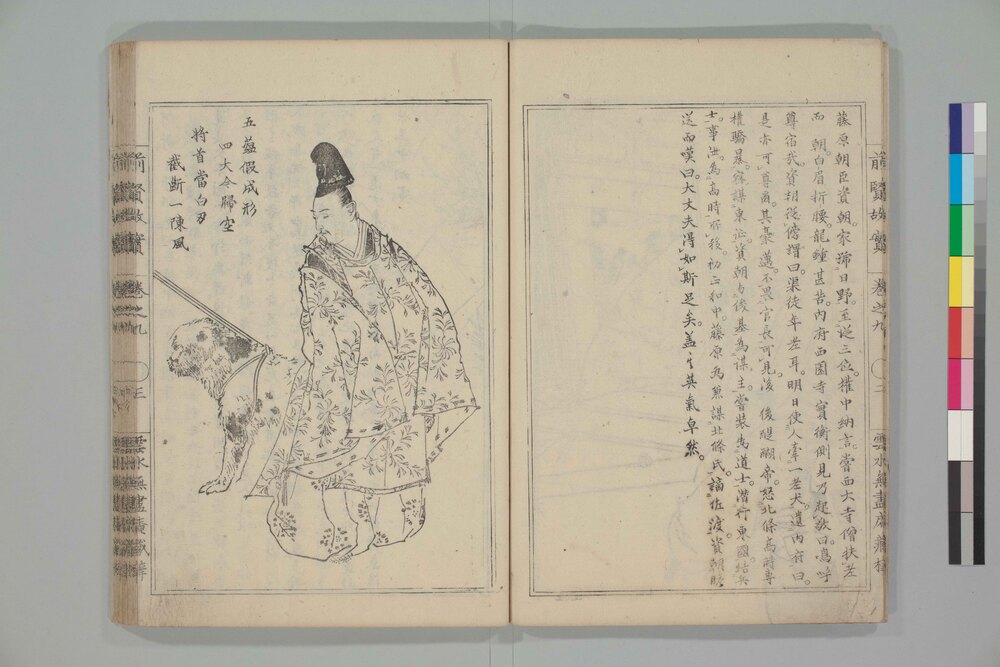 藤原朝臣資朝。家號日野。至從三位。權中納言。嘗西大寺僧扶老
而 朝。白眉折腰。龍鍾甚苦。內府西園寺實衡側見乃起敬曰。嗚呼
尊宿哉。資朝從傍謂曰。渠徒年老耳。明日使人牽一老犬。遺內府曰。
是亦可尊焉。其豪邁。不畏官長可見。後 後醍醐帝。怒北條高時專
權驕暴。密謀東征。資朝與俊基為謀主。嘗裝為道士。潛行東國結兵
士。事洩。為高時所 。初正和中。藤原為兼謀北條氏。謫佐渡。資朝
送而嘆曰。大丈夫得如斯足矣。蓋其英氣卓然。
五蘊假成形
四大今歸空
將首當白刃
截斷一陳風
前賢故實 卷之九
前賢故實 卷之九